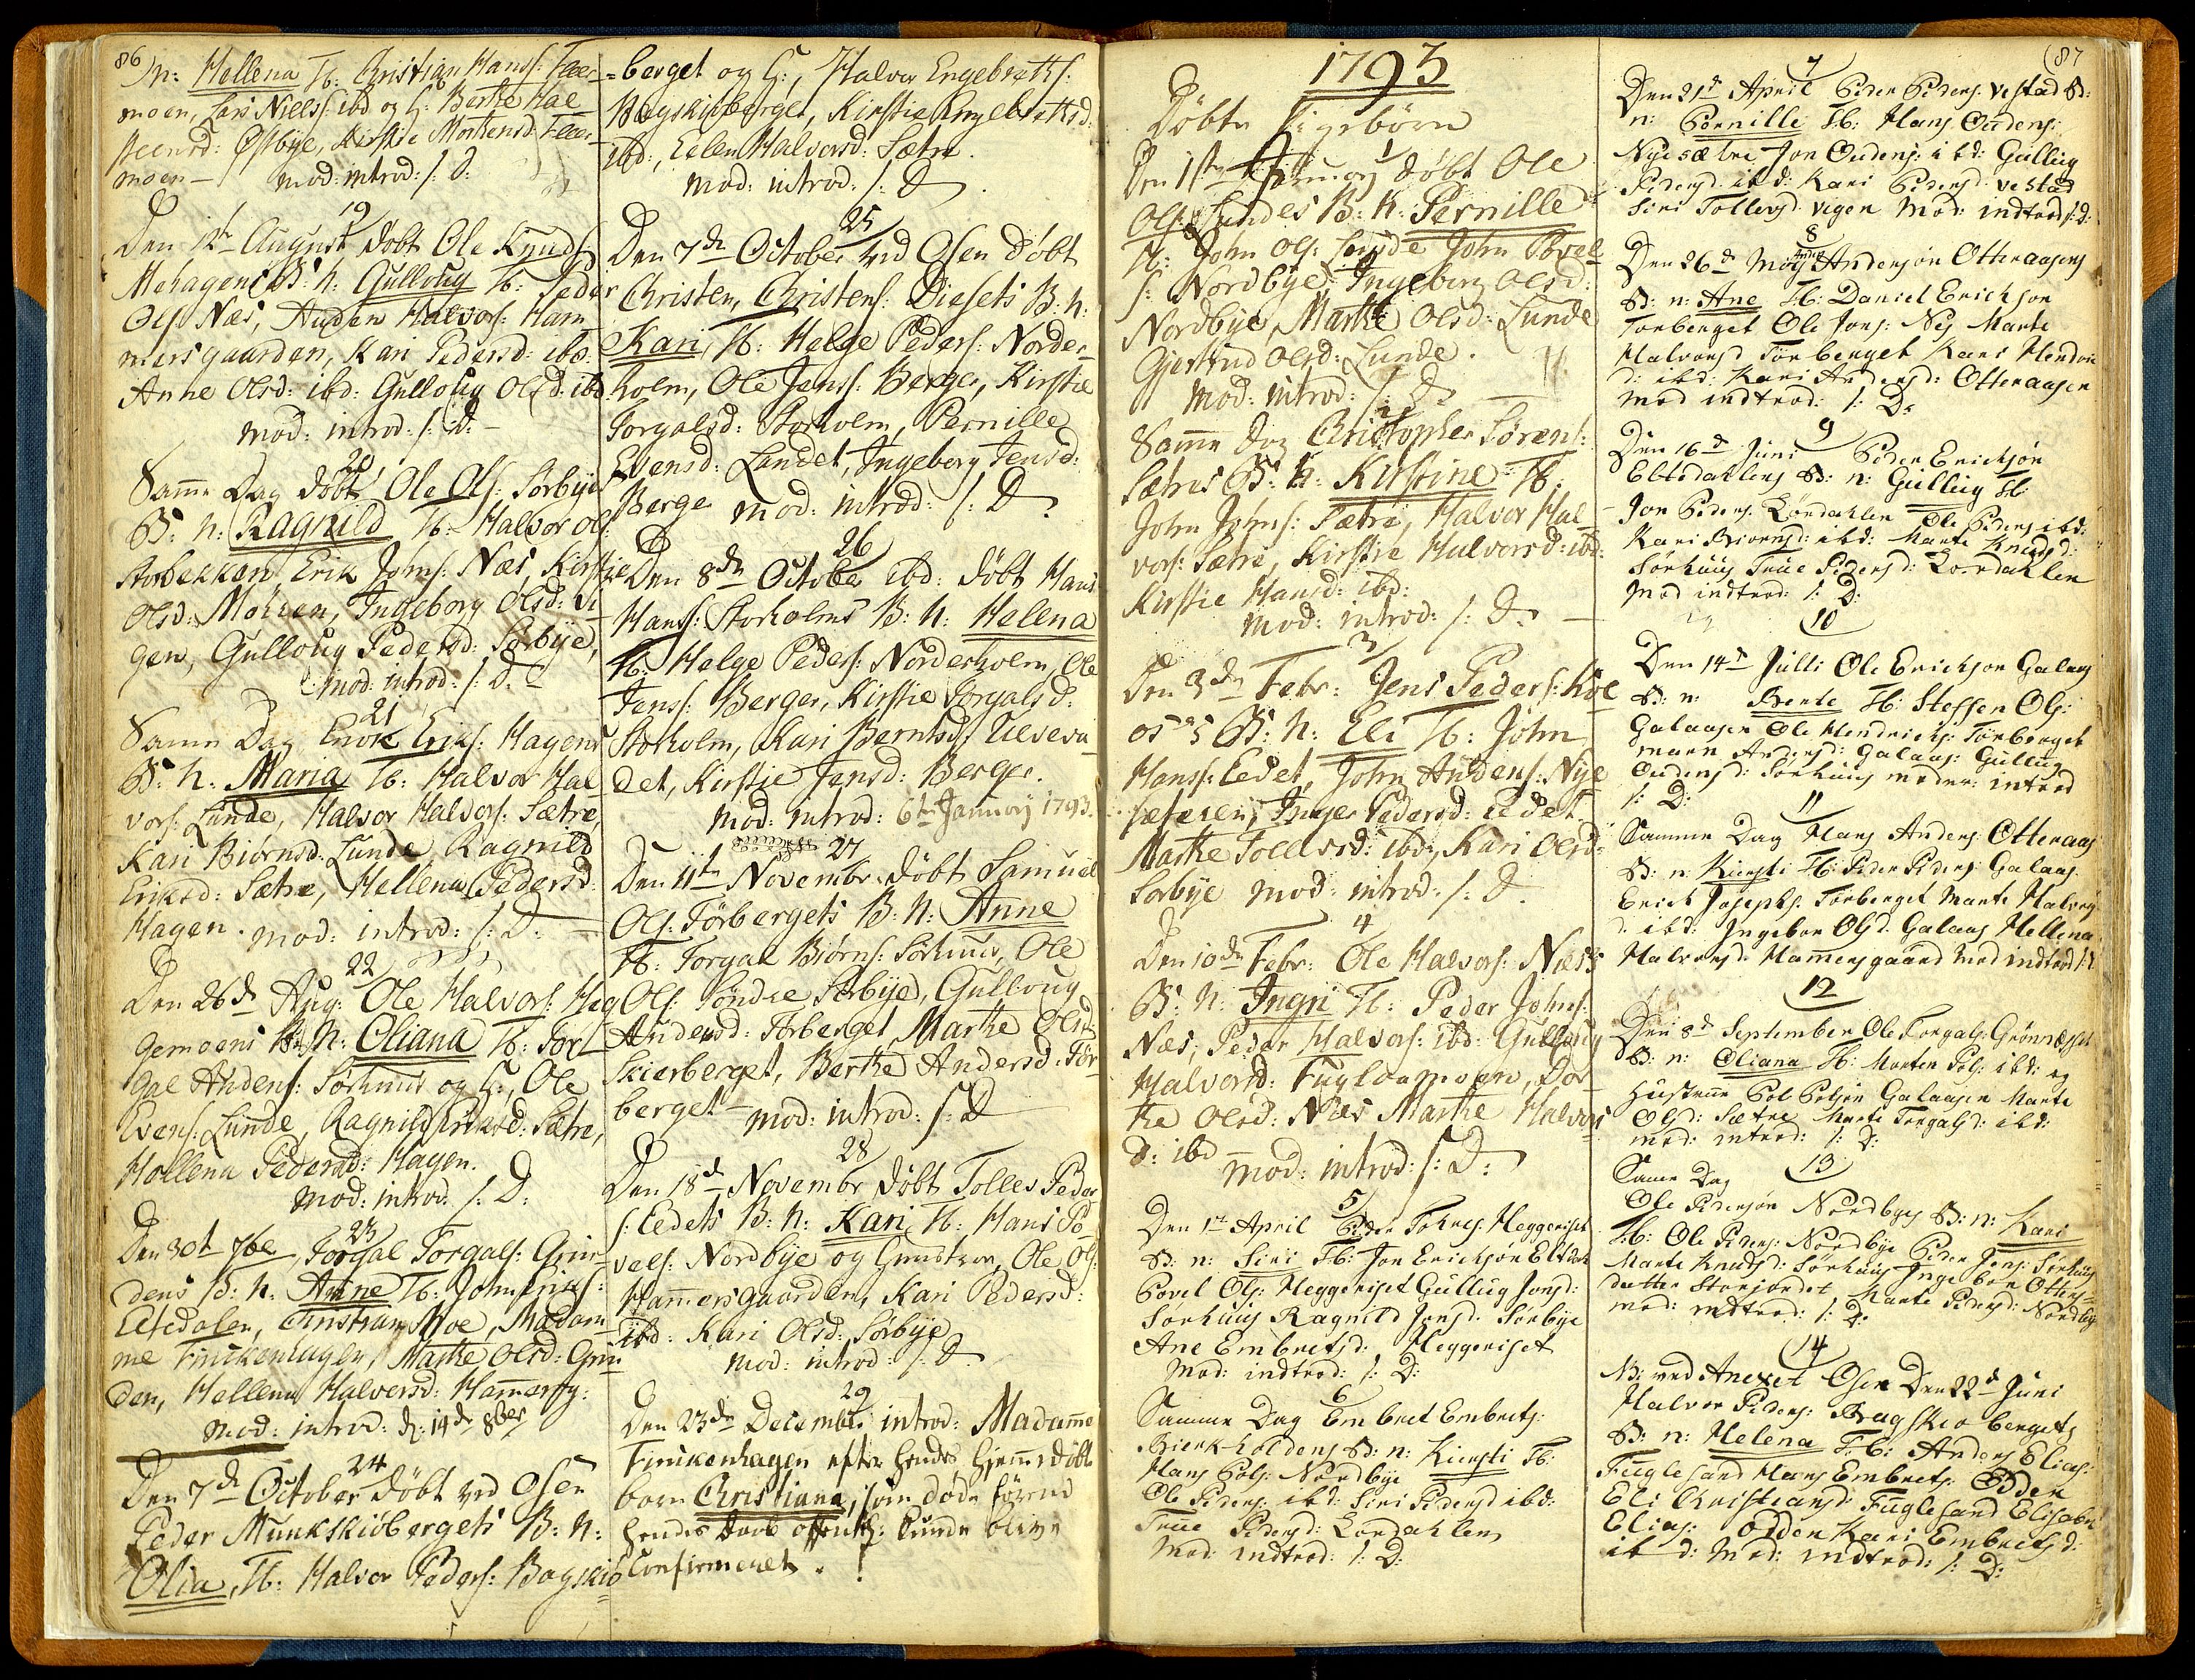 86
n: Hellena Tb: Christian Hanss: Flær-
moen, Lars Nielss: ibd og H: Berthe Hal
steensd: Østbye, Kirstie Mortensd: Flær-
moen – mod: introd: /: D:
19
Den 1ste August døbt Ole Knuds
Mehagens B: n: Gulloug Tb: Peder
Ols: Næs, Auden Halvors: Ham
mersgaarden, Kari Pedersd: ibd:
Anne Olsd: ibd: Gulloug Olsd: ibd
mod: introd: /: D: –
20
Samme Dag døbt Ole Ols: Sorbye
B: n: Ragnild Tb: Halvor Ols:
Storbekken, Erik Johns: Næs, Kirstie
Olsd: Mohren, Ingeborg Olsd: Vi
gen, Gulloug Pedersd: Sorbye,
mod: introd: /: D: –
21
Samme Dag Enok Eriks: Hagens
B: n: Maria Tb: Halvor Hal
vors: Lunde, Halvor Halvors: Sætre,
Kari Biørnsd: Lunde Ragnild
Eriksd: Sætre, Hellena Pedersd:
Hagen. mod: introd: /: D: –
22
Den 26de Aug: Ole Halvors: Hag
gemoens B: n: Oliana Tb: Tor
gal Andens: Sørhuus og H:, Ole
Evens: Lunde, Ragnild Eriksd: Sætre,
Hollena Pedersd: Hagen.
mod: introd: /: D:
23
Den 30t 7br, Torgal Torgals: Grin-
dens B: n: Anne Tb: John Eriks:
Eltedalen, Christian Moe, Madam-
me Finckenhagen, Marthe Olsd: Grin
den, Hellena Halvorsd: Hammersg:
mod: introd: d: 14de 8ber
24
Den 7de October døbt ved Osen
Peder Munkskiøbergets B: n:
Olia, Tb: Halvor Peders: Bagskiø
=berget og H:, Halvor Engebreths:
Bagskiøberget, Kirstie Engelbrettsd:
ibd:, Eelen Halvorsd: Sætre.
mod: introd: /: D.
25
Den 7de October ved Osen døbt
Christen, Christens: Diesets B: n:
Kari, Tb: Helge Peders: Norder-
holm, Ole Jenss: Berger, Kirstie
Torgalsd: Storholm, Pernille
Evensd: Landet, Ingeborg Jensd:
Berger mod: introd: /: D:
26
Den 8de October ibd: døbt Hans
Hanss: Storholms B: n: Helena
Tb: Helge Peders: Norderholm, Ole
Jenss: Berger, Kirstie Torgalsd:
Storholm, Kari Berntsd: Ulveva
det, Kirstie Jensd: Berger.
mod: introd: 6te Januarij 1793.
27
Den 11te Novembr: døbt Samuel
Ols: Førbergets B: n: Anne
Tb: Torgal Biørns: Sørhuus, Ole
Ols: Søndre Sorbye, Gulloug
Andersd: Førberget, Marthe Olsd:
Skierberget, Berthe Andersd: Før
berget – mod: introd: /: D
28
Den 18de Novembr døbt Tolles Peder
s: Eedets B: n: Kari, Tb: Hans Po
vels: Nordbye og Hustrue, Ole Ols:
Hammersgaarden, Kari Pedersd:
ibd: Kari Olsd: Sorbye,
mod: introd: /: D.
29
Den 23de Decembr: introd: Madamme
Finckenhagen efter hendes hjemmedøbte
barn Christiana, som døde førend
hendes daab offentl: kunde blive
Confirmeret.
1793
Døbte Pigebørn
1
Den 1ste Januarj døbt Ole
Ols: Lundes B: n: Pernille
Tb: John Ols: Lunde John Povel
s: Nordbye, Ingeborg Olsd:
Nordbye, Marthe Olsd: Lunde
Gjertrud Olsd: Lunde.
mod: introd: /: D:
2
Samme dag Christopher Sørens:
Sætres B: n: Kirstine Tb:
John Johns: Sætre, Halvor Hal-
vors: Sætre, Kirstie Halvorsd: ibd:
Kirstie Hansd: ibd:
mod: introd: /: D. –
3
Den 3de Febr: Jens Peders: Kol
os's B: n: Eli Tb: John
Hanss: Eedet, John Andens: Nye
sæteren, Inger Pedersd: Eedet
Marthe Tollevsd: ibd:, Kari Olsd:
Sorbye mod: introd: /: D.
4
Den 10de Febr: Ole Halvors: Næs's
B: n: Ingri Tb: Peder Johns:
Næs, Peder Halvors: ibd: Gulloug
Halvorsd: Fugloamoen, Dor
the Olsd: Næs Marthe Halvors
d: ibd – mod: introd: /: D:
5
Den 1te April Peder Tohres: Heggeriset
B: n: Siri Tb: Jon Erichsøn Eltdal
Povel Ols: Heggeriset Gullug Jonsd:
Sørhuus Ragnild Jonsd: Sørbye
Ane Embretsd: Heggeriset
Mod: indtrod: /: D:
6
Samme Dag Embret Embrets:
Bierk-holdens B: n: Kiersti Tb:
Hans Pols: Nordbye
Ole Peders: ibd: Siri Pedersd ibd:
True Pedersd: Lørdahlen
Mod: indtrod: /: D:
(87
7
Den 21de April Peder Peders: Vestad B:
n: Pernille Tb: Hans Oudens:
Nysætre Jon Oudens: ibd: Gullug
Pedersd: ibd: Kari Pedersd: Vestad
Siri Tollevsd: Vegen Mod: indtrod /: D:
8
Den 26de Maij Andersøn Otteraasens
B: n: Ane Tb: Daniel Erichsøn
Torberget Ole Jons: Nes Marte
Halvorsd: Torberget Kari Hendric
d: ibd: Kari Andersd: Otteraasen
Mod indtrod: /: D:
9
Den 16de Juni Peder Erichsøn
Eltedahlens B: n: Gullug Tb:
Jon Peders: Lørdahlen Ole Peders ibd:
Kari Biørnsd: ibd: Marte Knudsd:
Sørhuus True Pedersd: Lørdahlen
Mod indtrod: /: D:
10
Den 14de Julli Ole Erichsøn Galaas
B: n: Bente Tb: Steffen Ols:
Galaasen Ole Hendrichs: Torberget
Andersd: Galaas: Gullug
Oudensd: Sørhuus moder: introd
/: D:
11
Samme Dag Hans Anders: Otteraas
B: n: Kiersti Tb: Peder Peders: Galaas
Erich Josephs: Torberget Marte Halvors
d: ibd: Ingebor Olsd: Galaas Hellena
Halvorsd: Hammersgaard Mod indtrod /:
12
Den 8de September Ole Torgals: Grønnæset
B: n: Oliana Tb: Morten Pols: ibd: og
Hustrue Pol Polsøn Galaasen Marte
Olsd: Sætre Marte Torgalsd: ibd:
mod: introd: /: D:
13
Samme Dag
Ole Pedersøn Nordbyes B: n: Kari
Tb: Ole Peders: Nordbye Peder Jons: Sørhuus
Marte Knutsd: Sørhuus Ingebor Ottes=
datter Storjordet Marte Pedersd: Nordbye
mod: indtrod: /: D:
14
N: ved Anexet Osen Den 22de Juni
Halvor Peders: Bragskiobergets
B: n: Helena Tb: Anders Elias:
Fuglesand Hans Embrets: Odden
Eli Christiansd: Fuglesand Elisabe
Elias: Odden Kari Embretsd:
ibd: Mod: indtrod: /: D: